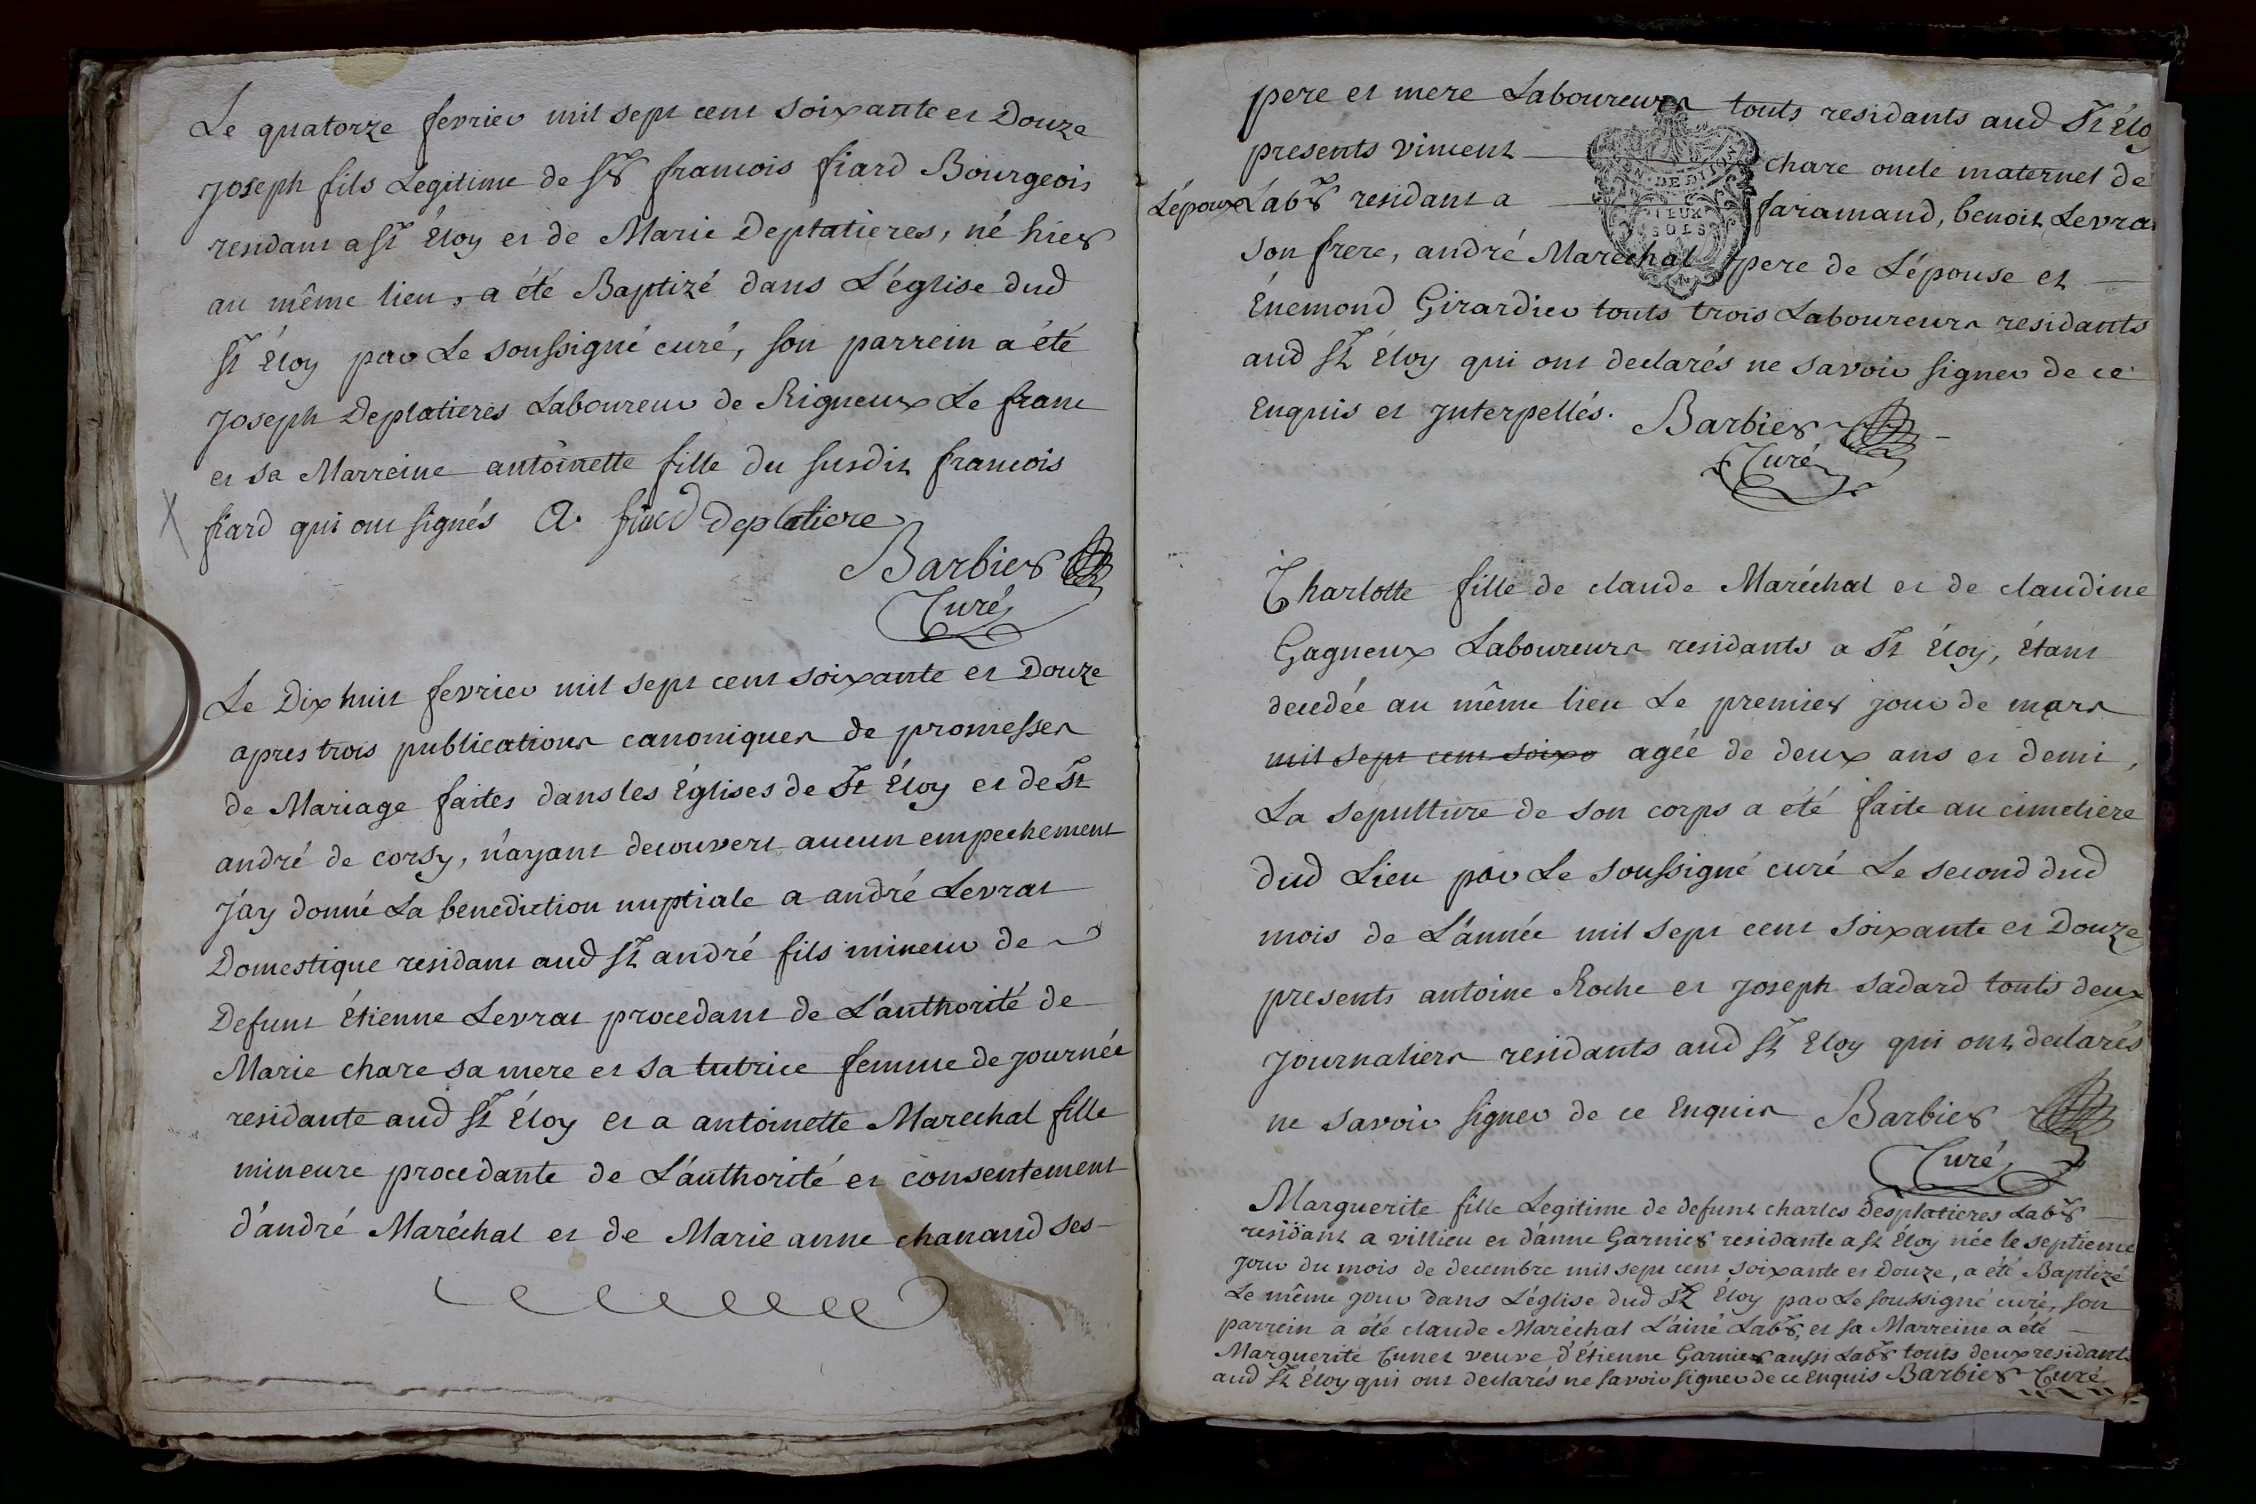 Le quatorze fevrier mil sept cent soixante et Douze
joseph fils Legitime de Sr francois fiard Bourgeois
residant a St Éloy et de Marie Deplatieres, né hier
au même lieu, a été Baptizé dans L'église dud
St Éloy par Le soussigné curé, son parrein a été
joseph Deplatieres Laboureur de Rigneux Le franc
et sa Marreine antoinette fille du susdit francois
fiard qui ont signés A. fiard deplatiere
Barbier
Curé
Le Dix huit fevrier mil sept cent soixante et Douze
apres trois publications canoniques de promesses
de Mariage faites dans les Églises de St Éloy et de St
andré de corsy, n'ayant decouvert aucun empechement
j'ay donné La benediction nuptiale a andré Levrat
Domestique residant aud St andré fils mineur de
Defunt Étienne Levrat procedant de L'authorité de
Marie chare sa mere et sa tutrice femme de journée
residante aud St Éloy et a antoinette Marechal fille
mineure procedante de L'authorité et consentement
d'andré Maréchal et de Marie anne chanand ses
pere et mere Laboureurs touts residants aud St Éloy
presents vincent chare oncle maternel de
L'époux Labr residant a faramand, benoit Levrat
son frere, andré Marechal pere de L'épouse et
Énemond Girardier touts trois Laboureurs residants
aud St Éloy qui ont declarés ne savoir signer de ce
Enquis et jnterpellés. Barbier
Curé
DEUX
SOLS
Charlotte fille de claude Maréchal et de claudine
Gagneux Laboureurs residants a St Éloy, étant
decedée au même lieu Le premier jour de mars
mil sept cent soixa agée de deux ans et demi,
La sepulture de son corps a été faite au cimetiere
dud Lieu par Le soussigné curé Le second dud
mois de L'année mil sept cent soixante et Douze
presents antoine Roche et joseph sadard touts deux
journaliers residants aud St Eloy qui ont declarés
ne savoir signer de ce Enquis Barbier
Curé
Marguerite fille Legitime de defunt charles Desplatieres Labr
residant a villieu et d'anne Garnier residante a St Éloy née le septieme
jour du mois de decembre mil sept cent soixante et Douze, a été Baptizé
Le même jour dans L'église dud St Éloy par Le soussigné curé, son
parrein a été claude Maréchal L'ainé Labr, et sa Marreine a été
Marguerite Cunet veuve d'Étienne Garnier aussi Labr touts deux residants
aud St Éloy qui ont declarés ne savoir signer de ce Enquis Barbier Curé